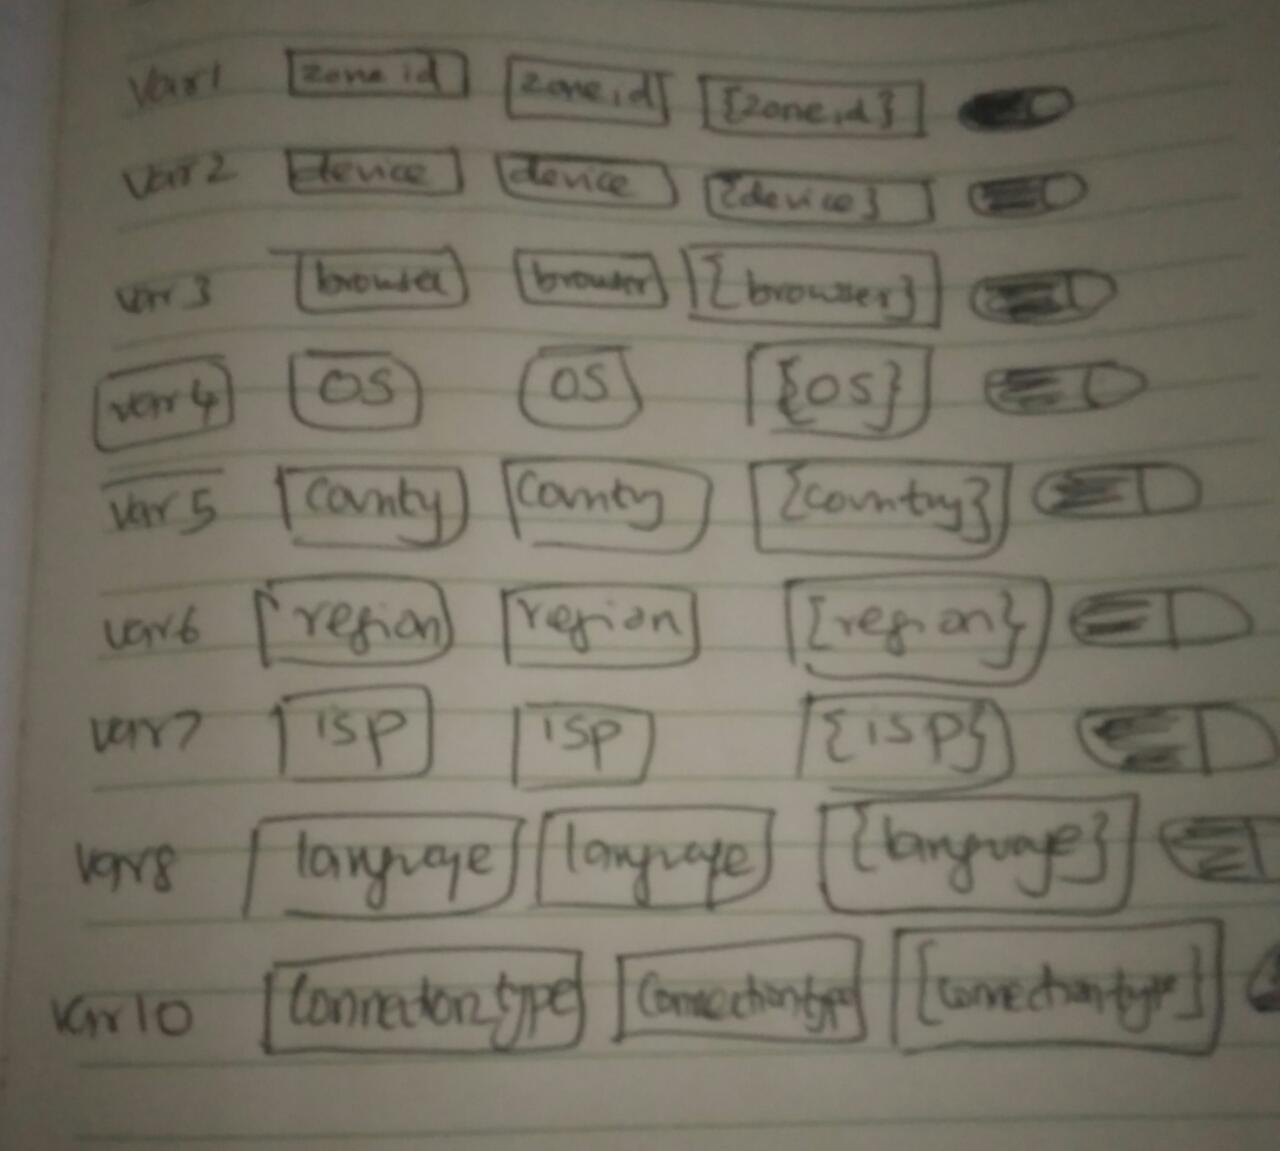 Var 1 zone id zone id {zone id}
Var 2 device device {device}
Var 3 browser browser {browser}
Var 4 OS OS {OS}
Var 5 County County {country}
Var 6 region region {region}
Var 7 isp isp {isp}
Var 8 language language {language}
Var 10 Connection type Connection type {connection type}